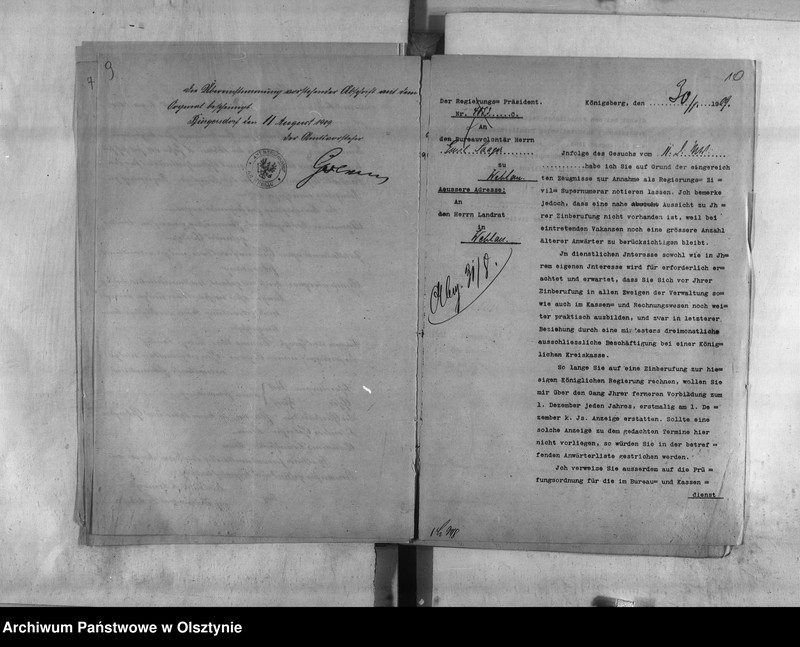 9
Die Übereinstimmung vorstehender Abschrift mit dem
Original bescheinigt
den 11 August 1909
der Amtsvorsteher
10
Der Regierungs= Präsident.
Nr.
An
den Bureauvolontär Herrn
zu
Wehlau.
Aeussere Adresse:
An
den Herrn Landrat
in
Wehlau.
Abg. 31/8.
Königsberg, den 30/ 1909.
Jnfolge des Gesuchs vom
habe ich Sie auf Grund der eingereich
ten Zeugnisse zur Annahme als Regierungs= Zi=
vil= Supernumerar notieren lassen. Jch bemerke
jedoch, dass eine nahe Aussicht zu Jh=
rer Einberufung nicht vorhanden ist, weil bei
eintretenden Vakanzen noch eine grössere Anzahl
älterer Anwärter zu berücksichtigen bleibt.
Jm dienstlichen Jnteresse sowohl wie in Jh=
rem eigenen Jnteresse wird für erforderlich er=
achtet und erwartet, dass Sie Sich vor Jhrer
Einberufung in allen Zweigen der Verwaltung so=
wie auch im Kassen= und Rechnungswesen noch wei=
ter praktisch ausbilden, und zwar in letzterer
Beziehung durch eine mindestens dreimonatliche
ausschliessliche Beschäftigung bei einer König=
lichen Kreiskasse.
So lange Sie auf eine Einberufung zur hie=
sigen Königlichen Regierung rechnen, wollen Sie
mir über den Gang Jhrer ferneren Vorbildung zum
1. Dezember jeden Jahres, erstmalig am 1. De=
zember k. Js. Anzeige erstatten. Sollte eine
solche Anzeige zu dem gedachten Termine hier
nicht vorliegen, so würden Sie in der betref=
fenden Anwärterliste gestrichen werden.
Jch verweise Sie ausserdem auf die Prü=
fungsordnung für die im Bureau= und Kassen=
dienst
Archiwum Państwowe w Olsztynie